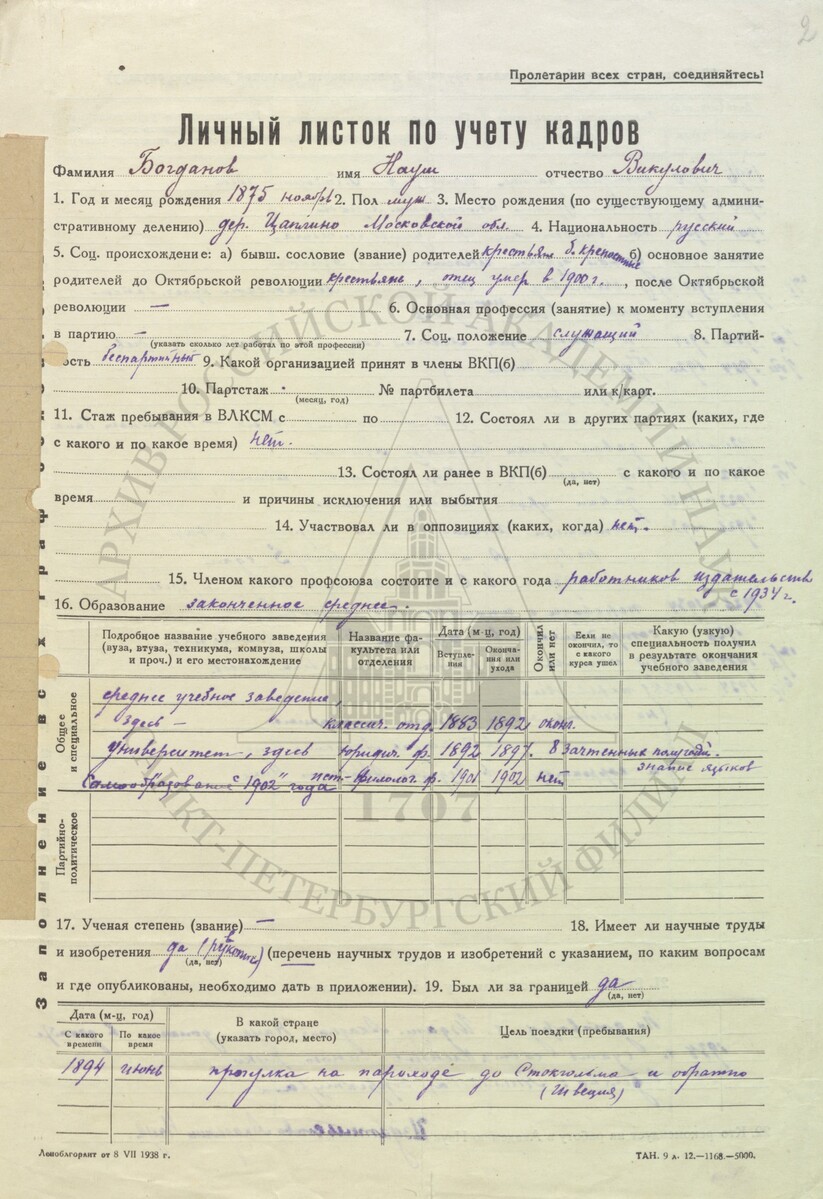 2
Пролетарии всех стран, соединяйтесь!
Личный листок по учету кадров
Фамилия Богданов имя Наум отчество Викулович
1. Год и месяц рождения 1875 ноябрь 2. Пол муж 3. Место рождения (по существующему админи-
стративному делению) дер. Цаплино Московской обл. 4. Национальность русский
5. Соц. происхождение: а) бывш. сословие (звание) родителей крестьяне б. крепостные б) основное занятие
родителей до Октябрьской революции крестьяне, отец умер в 1900 г., после Октябрьской
революции — 6. Основная профессия (занятие) к моменту вступления
в партию — 7. Соц. положение служащий 8. Партий-
(указать сколько лет работал по этой профессии)
ность беспартийный 9. Какой организацией принят в члены ВКП(б)
10. Партстаж № партбилета или к/карт.
(месяц, год)
11. Стаж пребывания в ВЛКСМ с по 12. Состоял ли в других партиях (каких, где
с какого и по какое время) нет.
13. Состоял ли ранее в ВКП(б) с какого и по какое
(да, нет)
время и причины исключения или выбытия
14. Участвовал ли в оппозициях (каких, когда) нет.
15. Членом какого профсоюза состоите и с какого года работников издательств
с 1934 г.
16. Образование законченное среднее.
Подробное название учебного заведения (вуза, втуза, техникума, комвуза, школы и проч.) и его местонахождение Название факультета или отделения Дата (м-ц, год) Вступления Окончания или ухода Окончил или нет Если не окончил, то с какого курса ушел Какую (узкую) специальность получил в результате окончания учебного заведения
Общее и специальное
среднее учебное заведение,
здесь — классич. отд. 1883 1892 оконч.
Университет, здесь юридич. ф. 1892 1897. 8 зачтенных полугодий.
Самообразование с 1902 года ист.-филолог. ф. 1901 1902 нет знание языков
Партийно-политическое
17. Ученая степень (звание) — 18. Имеет ли научные труды
и изобретения да (рукопись) (перечень научных трудов и изобретений с указанием, по каким вопросам
(да, нет)
и где опубликованы, необходимо дать в приложении). 19. Был ли за границей да
(да, нет)
Дата (м-ц, год) В какой стране (указать город, место) Цель поездки (пребывания)
С какого времени По какое время
1894 июнь прогулка на пароходе до Стокгольма и обратно
(Швеция)
Леноблгорлит от 8 VII 1938 г. ТАН. 9 л. 12.—1168.—5000.
Заполнение всех граф
АРХИВ РОССИЙСКОЙ АКАДЕМИИ НАУК
САНКТ-ПЕТЕРБУРГСКИЙ ФИЛИАЛ
1707